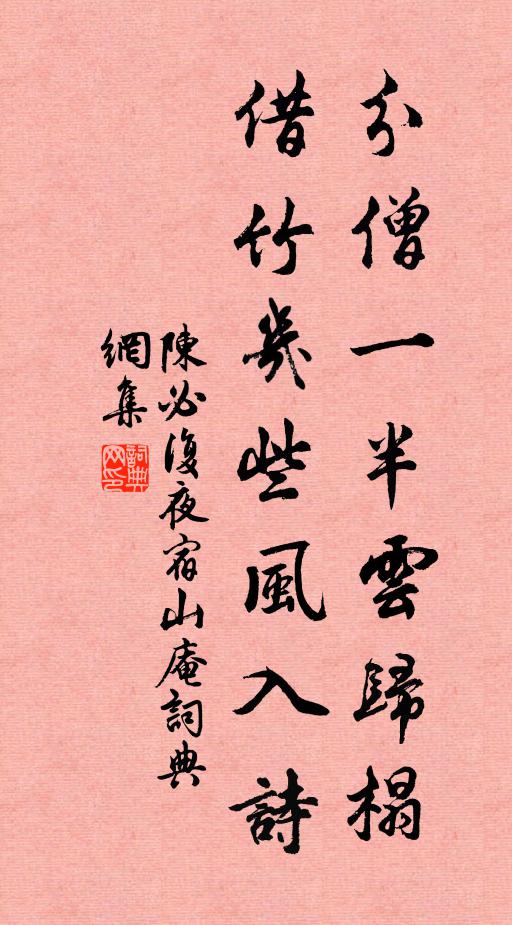 分僧一半雲歸榻
借竹幾些風入詩
陳必復夜宿山庵詞典
網集
詞典
网印